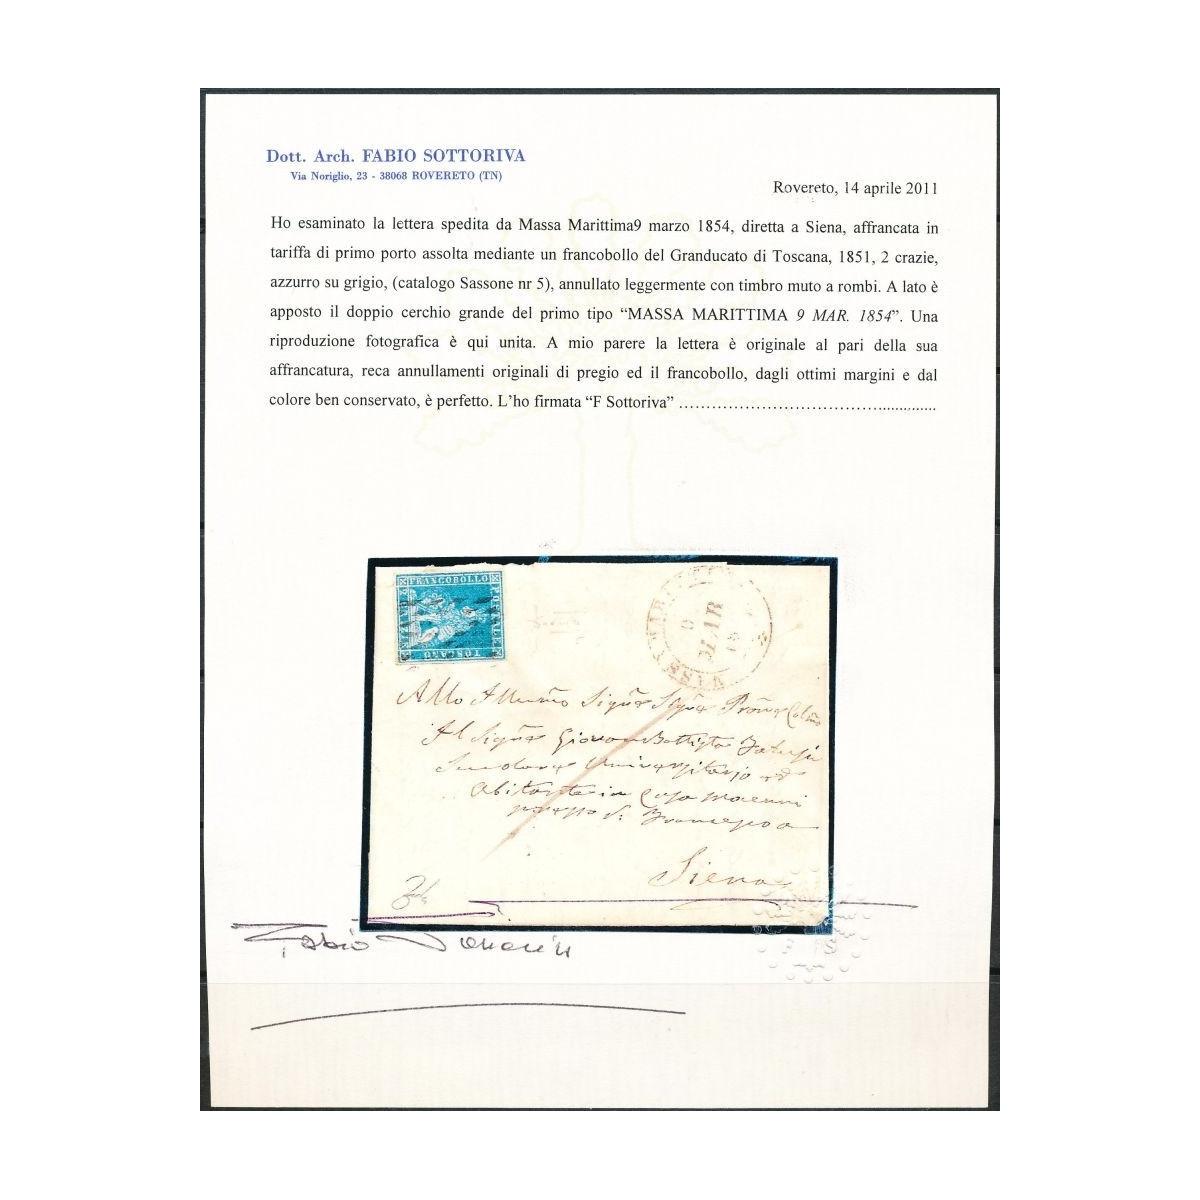 Dott. Arch. FABIO SOTTORIVA
Via Noriglio, 23 - 38068 ROVERETO (TN)
Rovereto, 14 aprile 2011
Ho esaminato la lettera spedita da Massa Marittima9 marzo 1854, diretta a Siena, affrancata in
tariffa di primo porto assolta mediante un francobollo del Granducato di Toscana, 1851, 2 crazie,
azzurro su grigio, (catalogo Sassone nr 5), annullato leggermente con timbro muto a rombi. A lato è
apposto il doppio cerchio grande del primo tipo “MASSA MARITTIMA 9 MAR. 1854”. Una
riproduzione fotografica è qui unita. A mio parere la lettera è originale al pari della sua
affrancatura, reca annullamenti originali di pregio ed il francobollo, dagli ottimi margini e dal
colore ben conservato, è perfetto. L’ho firmata “F Sottoriva” ………………………………................
FRANCOBOLLO
POSTALE
TOSCANO
MAR
Al Sigre Giovan Battista
Siena
Fabio